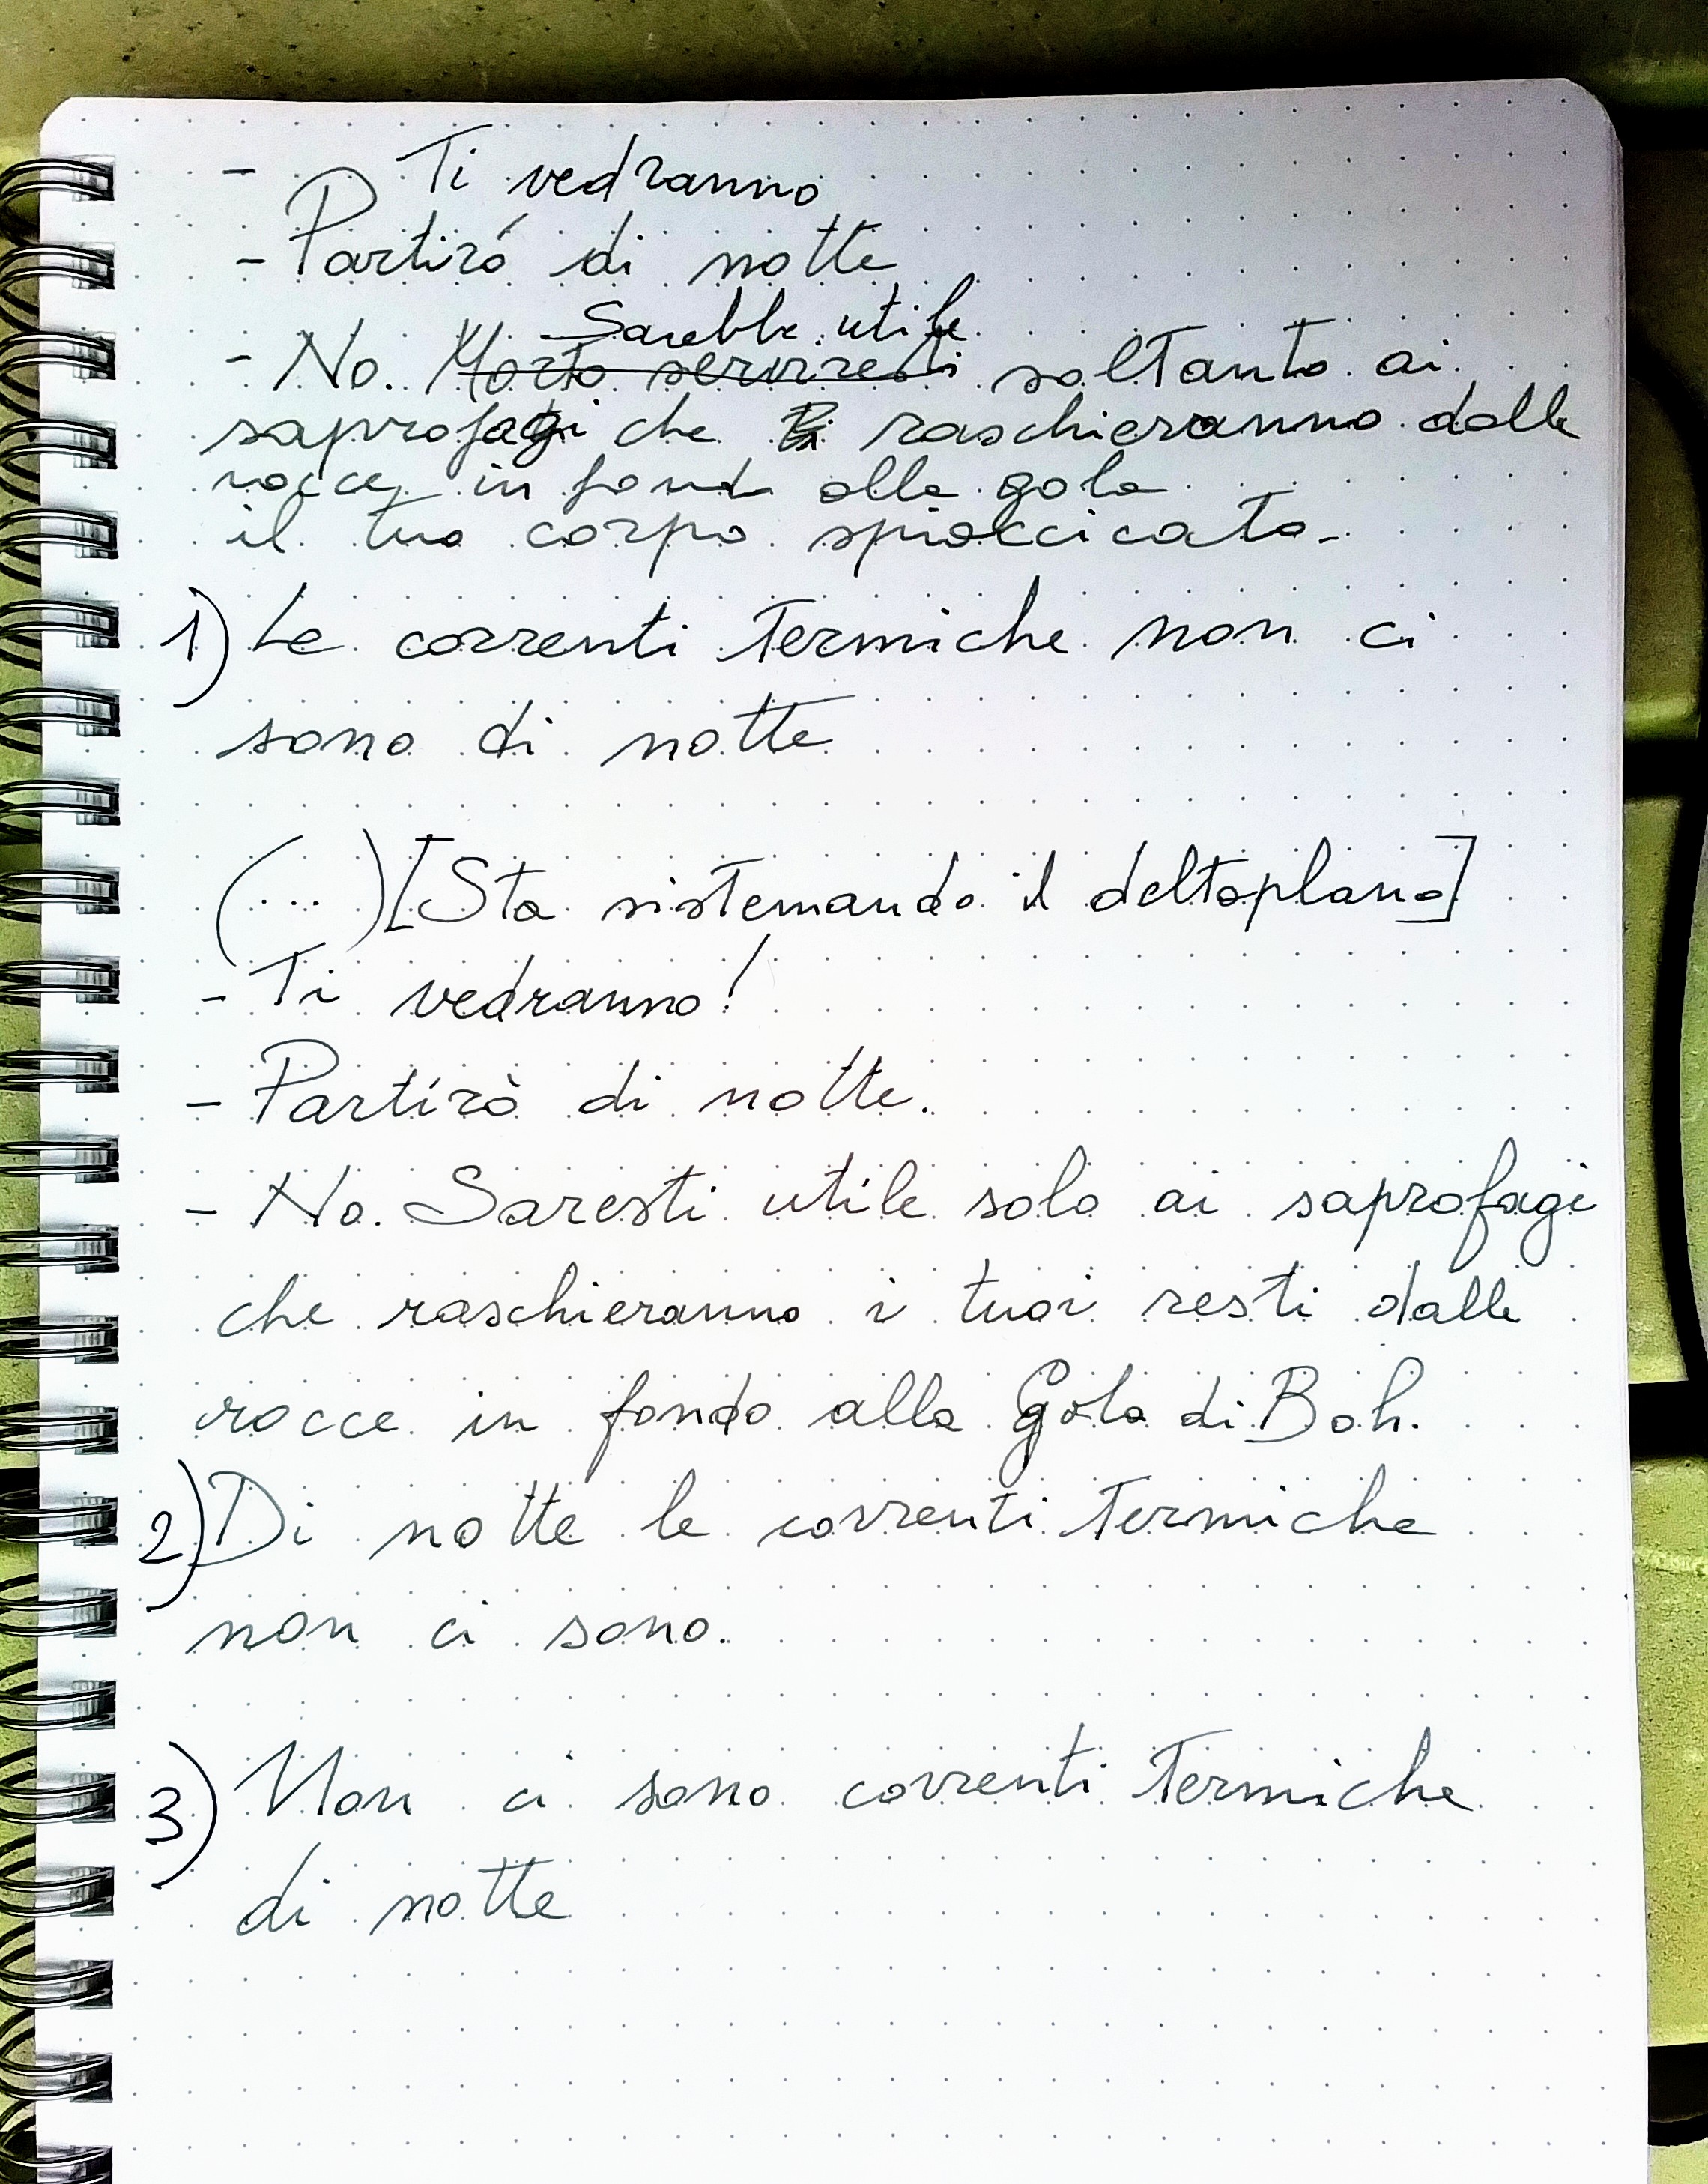 - Ti vedranno
- Partiró di notte
Sarebbe utile
- No. Morto serviresti soltanto ai
saprofagi che ti raschieranno dalle
rocce in fondo alla gola
il tuo corpo spiaccicato.
1) Le correnti termiche non ci
sono di notte
(...) [Sta sistemando il deltaplano]
- Ti vedranno!
- Partirò di notte.
- No. Saresti utile solo ai saprofagi
che raschieranno i tuoi resti dalle
rocce in fondo alla Gola di Boh.
2) Di notte le correnti termiche
non ci sono.
3) Non ci sono correnti termiche
di notte